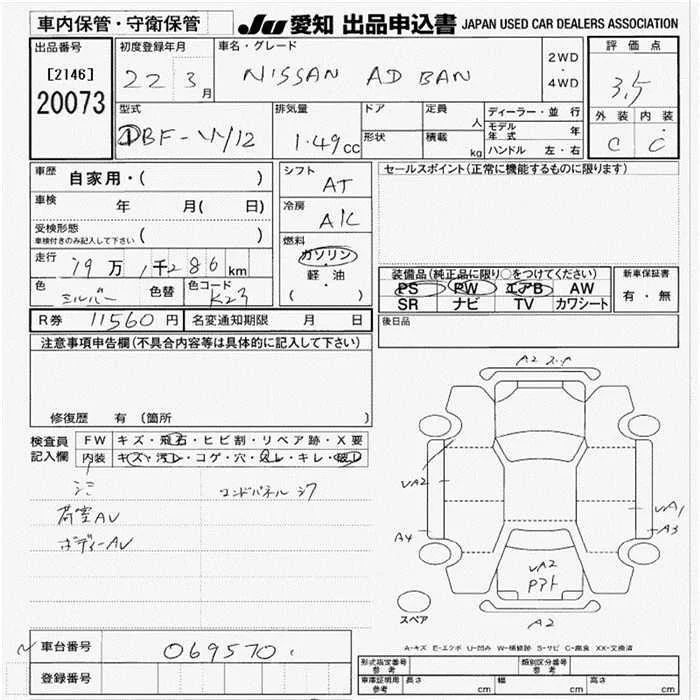 車内保管・守衛保管
JU 愛知 出品申込書 JAPAN USED CAR DEALERS ASSOCIATION
出品番号
[2146]
20073
初度登録年月
22 3月
車名・グレード
NISSAN AD BAN
2WD
・
4WD
評価点
3.5
外装 内装
C C
型式
DBF-VY12
排気量
1.49cc
ドア
形状
定員 人
積載 kg
ディーラー・並行
モデル年式 年
ハンドル 左・右
車歴 自家用・( )
車検 年 月( 日)
受検形態
車検付きのみ記入して下さい ( )
走行 19万 1千286km
色 シルバー 色替 色コード K23
シフト AT
冷房 A/C
燃料
ガソリン
軽・油
( ・ )
セールスポイント(正常に機能するものに限ります)
装備品(純正品に限り○をつけてください)
PS PW エアB AW
SR ナビ TV カワシート
新車保証書
有・無
R券 11560円 名変通知期限 月 日
後日品
注意事項申告欄(不具合内容等は具体的に記入して下さい)
修復歴 有(箇所 )
検査員記入欄
FW キズ・飛石・ヒビ割・リペア跡・X要
内装 キズ・汚レ・コゲ・穴・スレ・キレ・破レ
コンドパネル
荷室AU
ボディーAU
A2
UA2
A4
UA1
A3
UA2
A2
スペア
A-キズ E-エクボ U-凹み W-補修跡 S-サビ C-腐食 XX-交換済
車台番号 069570
登録番号
形式指定番号 参考
類別区分番号 参考
車庫証明用 参考 長さ cm 幅 cm 高さ cm